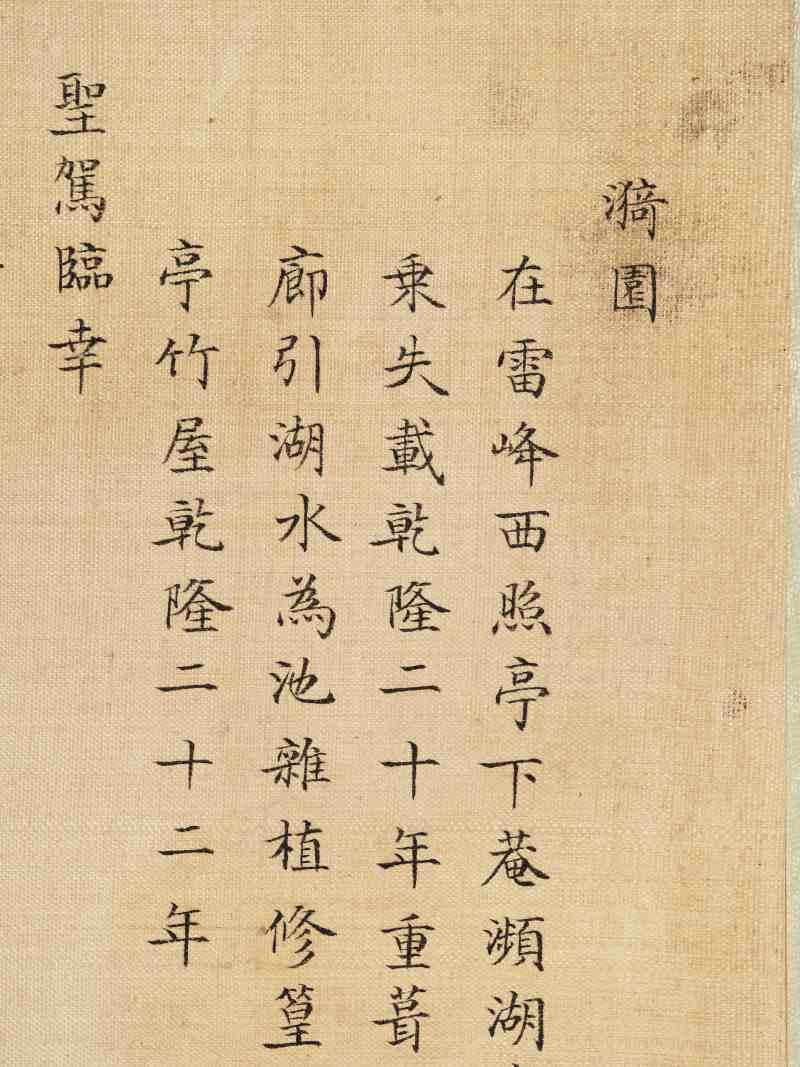 漪園
在雷峰西照亭下菴瀕湖
乗失載乾隆二十年重葺
廊引湖水為池雜植修篁
亭竹屋乾隆二十二年
聖駕臨幸